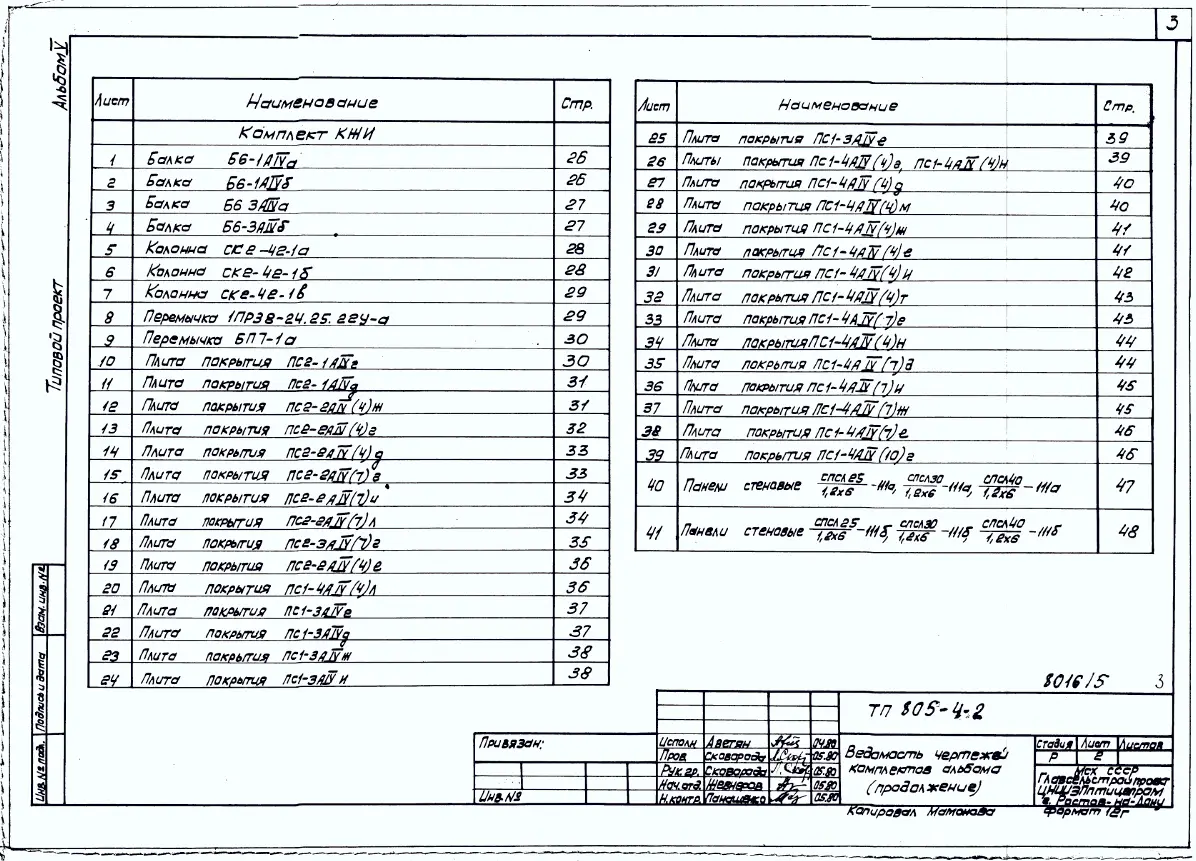 3
Альбом V
Типовой проект
Лист Наименование Стр.
Комплект КЖИ
1 Балка Б6-1АIVа 26
2 Балка Б6-1АIVб 26
3 Балка Б6 3АIVа 27
4 Балка Б6-3АIVб 27
5 Колонна СК2-42-1а 28
6 Колонна СК2-42-1б 28
7 Колонна СК2-42-1в 29
8 Перемычка 1ПР38-24.25.22у-а 29
9 Перемычка БП7-1а 30
10 Плита покрытия ПС2-1АIVг 30
11 Плита покрытия ПС2-1АIVд 31
12 Плита покрытия ПС2-2АIV(4)ж 31
13 Плита покрытия ПС2-2АIV(4)г 32
14 Плита покрытия ПС2-2АIV(4)д 33
15 Плита покрытия ПС2-2АIV(7)г 33
16 Плита покрытия ПС2-2АIV(7)и 34
17 Плита покрытия ПС2-2АIV(7)л 34
18 Плита покрытия ПС2-3АIV(7)г 35
19 Плита покрытия ПС2-2АIV(4)е 36
20 Плита покрытия ПС1-4АIV(4)л 36
21 Плита покрытия ПС1-3АIVе 37
22 Плита покрытия ПС1-3АIVд 37
23 Плита покрытия ПС1-3АIVж 38
24 Плита покрытия ПС1-3АIVи 38
Лист Наименование Стр.
25 Плита покрытия ПС1-3АIVе 39
26 Плиты покрытия ПС1-4АIV(4)г, ПС1-4АIV(4)н 39
27 Плита покрытия ПС1-4АIV(4)д 40
28 Плита покрытия ПС1-4АIV(4)м 40
29 Плита покрытия ПС1-4АIV(4)ж 41
30 Плита покрытия ПС1-4АIV(4)е 41
31 Плита покрытия ПС1-4АIV(4)и 42
32 Плита покрытия ПС1-4АIV(4)т 43
33 Плита покрытия ПС1-4АIV(7)е 43
34 Плита покрытия ПС1-4АIV(4)н 44
35 Плита покрытия ПС1-4АIV(7)д 44
36 Плита покрытия ПС1-4АIV(7)и 45
37 Плита покрытия ПС1-4АIV(7)ж 45
38 Плита покрытия ПС1-4АIV(7)е 46
39 Плита покрытия ПС1-4АIV(10)г 46
40 Панели стеновые СПСЛ25/1,2х6-111а, СПСЛ30/1,2х6-111а, СПСЛ40/1,2х6-111а 47
41 Панели стеновые СПСЛ25/1,2х6-111б, СПСЛ30/1,2х6-111б, СПСЛ40/1,2х6-111б 48
8016/5 3
ТП 805-4-2
Привязан:
Инв.№
Исполн Аветян 04.80
Пров. Сковорода 05.80
Рук.гр. Сковорода 05.80
Нач.отд. 05.80
Н.контр. Панашенко 05.80
Ведомость чертежей
комплектов альбома
(продолжение)
Стадия Лист Листов
Р 2
МСХ СССР
Главсельстройпроект
ЦНИИЭПптицепром
г. Ростов-на-Дону
Копировал Мамонова Формат 12г
Взам.инв.№
Подпись и дата
Инв.№ подл.